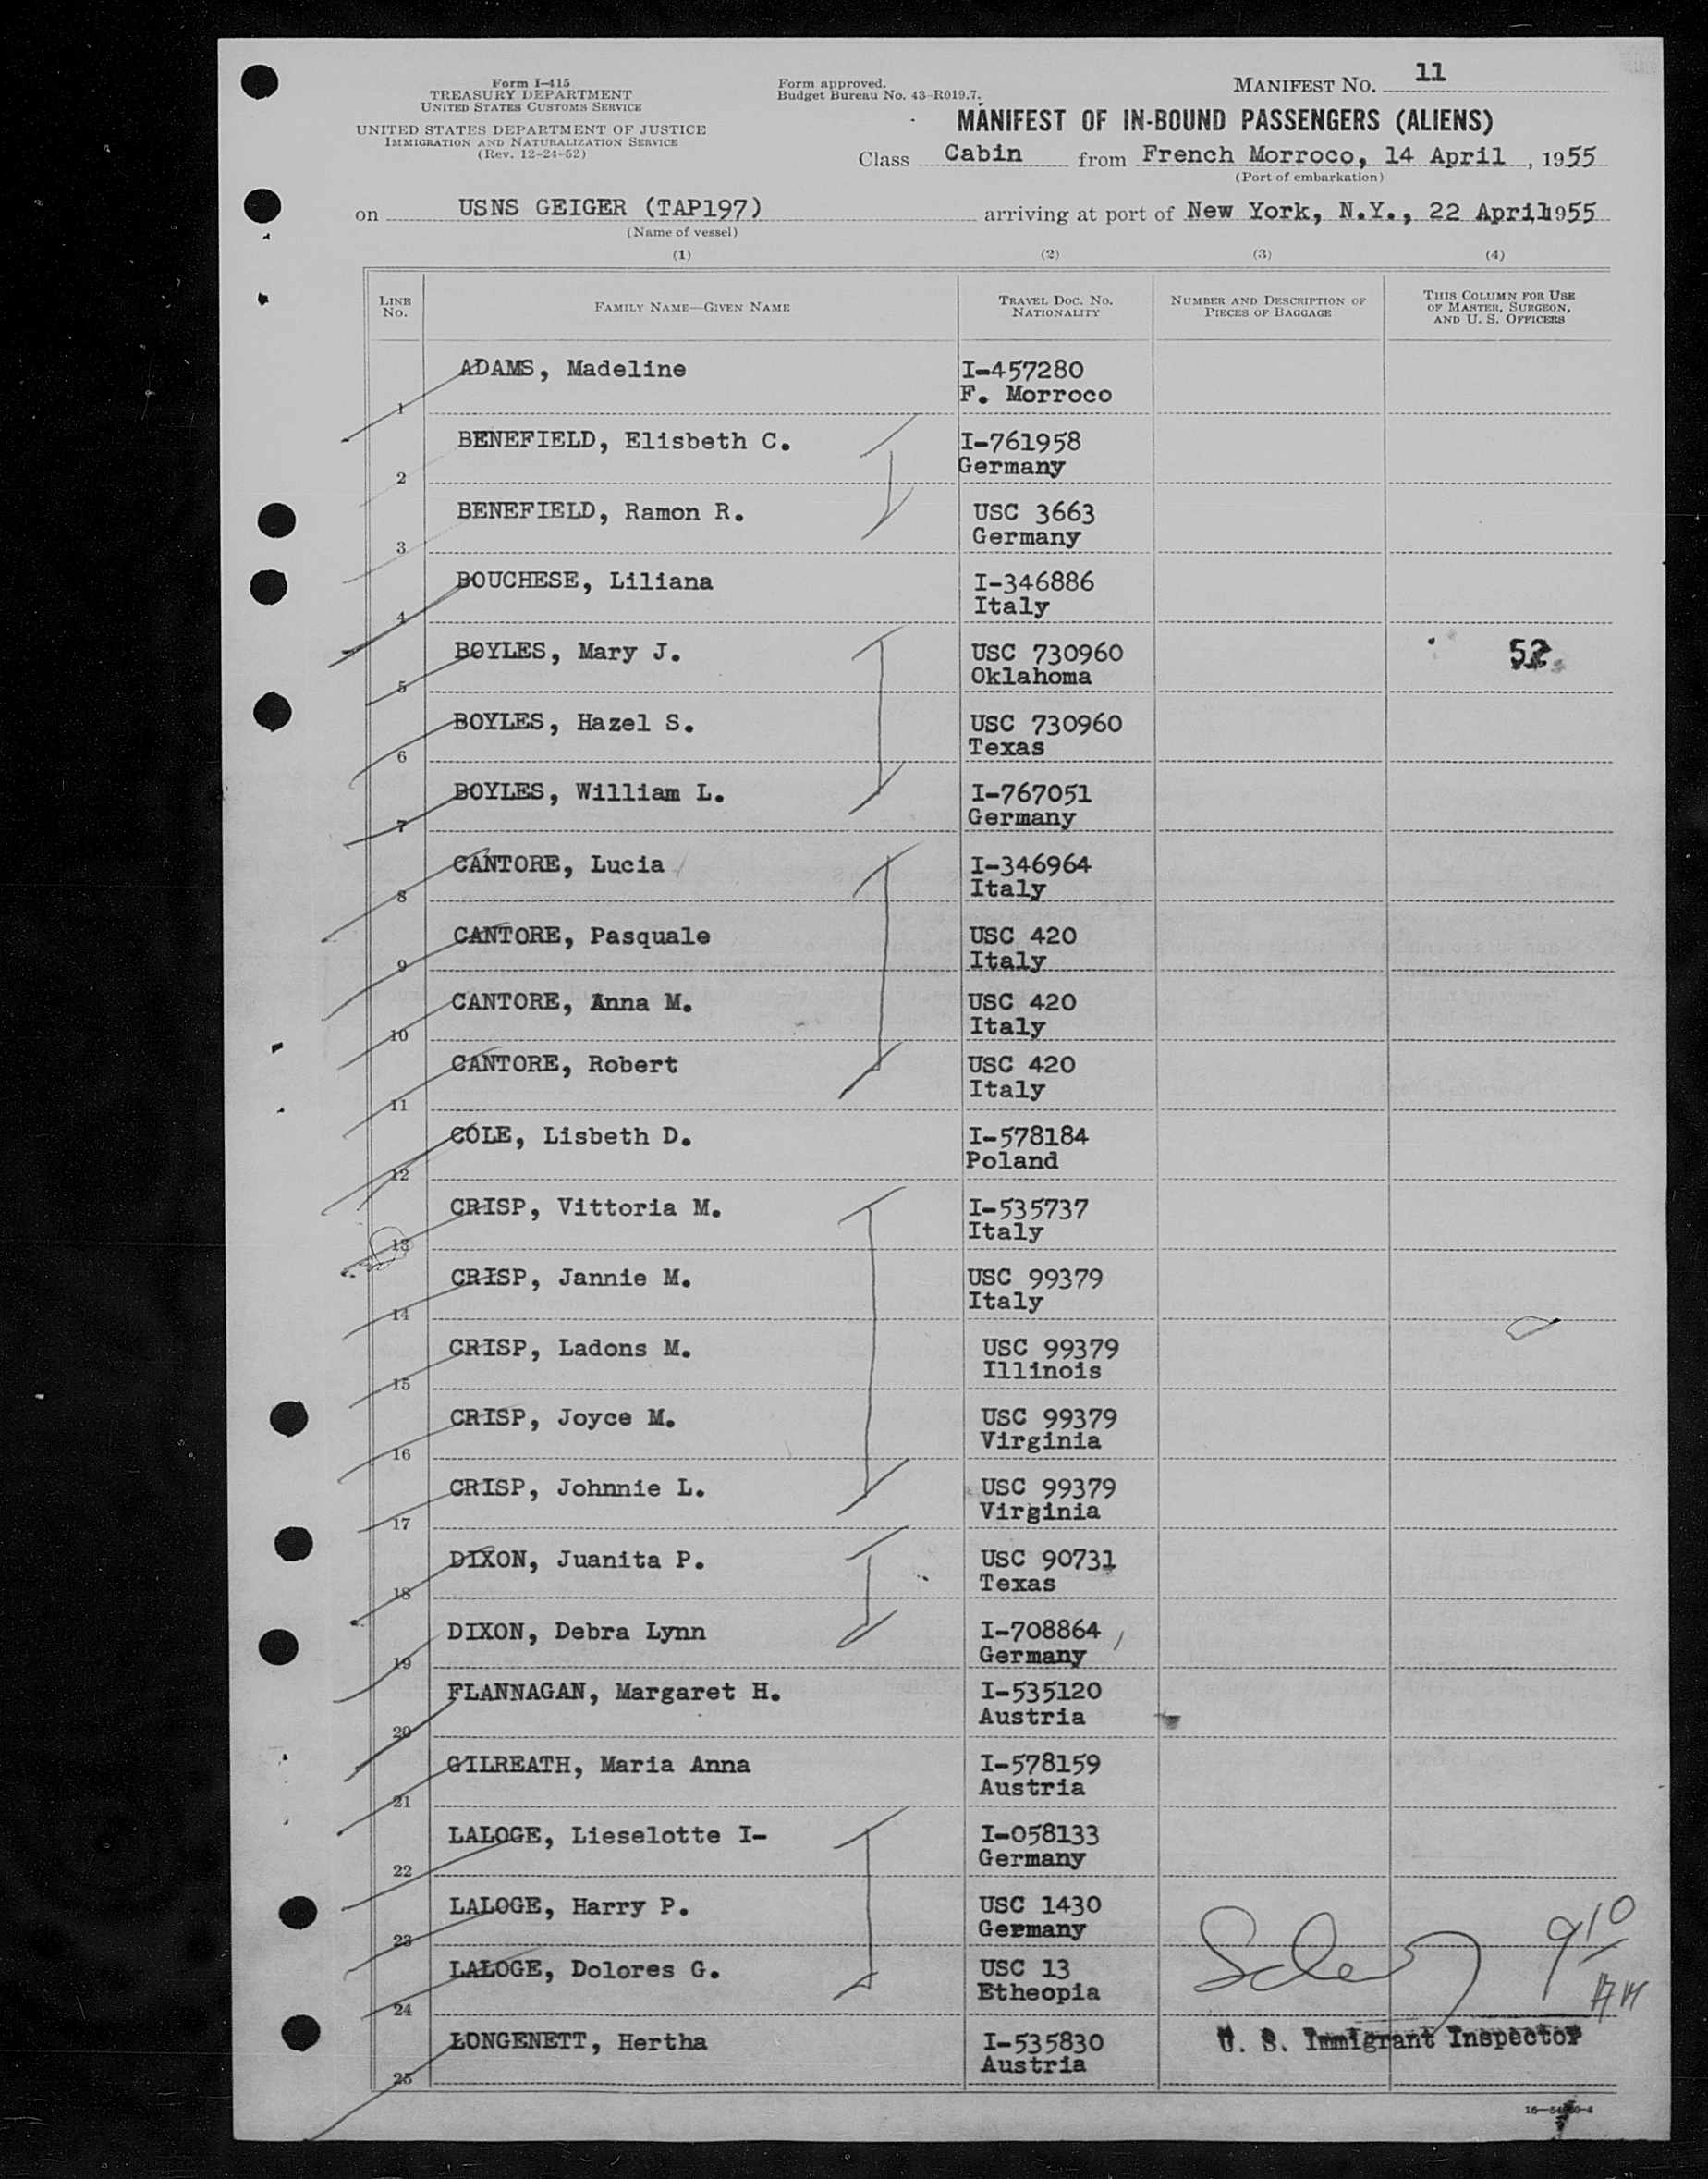 Form I-415
TREASURY DEPARTMENT
UNITED STATES CUSTOMS SERVICE
UNITED STATES DEPARTMENT OF JUSTICE
IMMIGRATION AND NATURALIZATION SERVICE
(Rev. 12-24-52)
Form approved.
Budget Bureau No. 43-R019.7.
MANIFEST NO. 11
MANIFEST OF IN-BOUND PASSENGERS (ALIENS)
Class Cabin from French Morroco, 14 April, 1955
(Port of embarkation)
on USNS GEIGER (TAP197) arriving at port of New York, N.Y., 22 April 1955
(Name of vessel)
(1) (2) (3) (4)
LINE NO.
FAMILY NAME—GIVEN NAME
TRAVEL DOC. NO. NATIONALITY
NUMBER AND DESCRIPTION OF PIECES OF BAGGAGE
THIS COLUMN FOR USE OF MASTER, SURGEON, AND U. S. OFFICERS
1 ADAMS, Madeline I-457280
F. Morroco
2 BENEFIELD, Elisbeth C. I-761958
Germany
3 BENEFIELD, Ramon R. USC 3663
Germany
4 BOUCHESE, Liliana I-346886
Italy
5 BOYLES, Mary J. USC 730960 52
Oklahoma
6 BOYLES, Hazel S. USC 730960
Texas
7 BOYLES, William L. I-767051
Germany
8 CANTORE, Lucia I-346964
Italy
9 CANTORE, Pasquale USC 420
Italy
10 CANTORE, Anna M. USC 420
Italy
11 CANTORE, Robert USC 420
Italy
12 COLE, Lisbeth D. I-578184
Poland
13 CRISP, Vittoria M. I-535737
Italy
14 CRISP, Jannie M. USC 99379
Italy
15 CRISP, Ladons M. USC 99379
Illinois
16 CRISP, Joyce M. USC 99379
Virginia
17 CRISP, Johnnie L. USC 99379
Virginia
18 DIXON, Juanita P. USC 90731
Texas
19 DIXON, Debra Lynn I-708864
Germany
20 FLANNAGAN, Margaret H. I-535120
Austria
21 GILREATH, Maria Anna I-578159
Austria
22 LALOGE, Lieselotte I- I-058133
Germany
23 LALOGE, Harry P. USC 1430
Germany
24 LALOGE, Dolores G. USC 13
Etheopia
9/10
AM
25 LONGENETT, Hertha I-535830
Austria
U. S. Immigrant Inspector